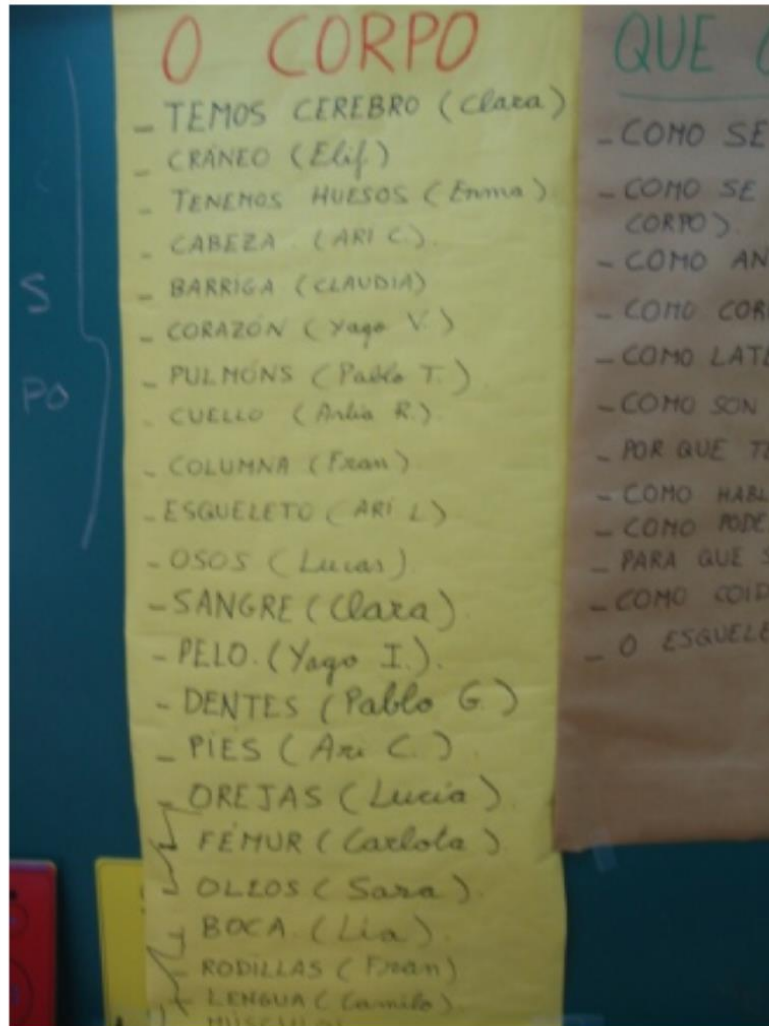 O CORPO
- TEMOS CEREBRO (Clara)
- CRÁNEO (Elif)
- TENEMOS HUESOS (Enma)
- CABEZA (ARI C.)
- BARRIGA (CLAUDIA)
- CORAZÓN (Yago V.)
- PULMÓNS (Pablo T.)
- CUELLO (R.)
- COLUMNA (Fran)
- ESQUELETO (ARI L)
- OSOS (Lucas)
- SANGRE (Clara)
- PELO. (Yago I.).
- DENTES (Pablo G.)
- PIES (Ari C.)
OREJAS (Lucía)
FÉMUR (Carlota)
OLLOS (Sara)
BOCA. (Lía).
RODILLAS (Fran)
LENGUA (Camilo).
QUE
- COMO SE
- COMO SE
CORPO).
- COMO
- COMO
- COMO
- COMO SON
- POR QUE
- COMO
- COMO
- PARA QUE
- COMO
- O
S
PO